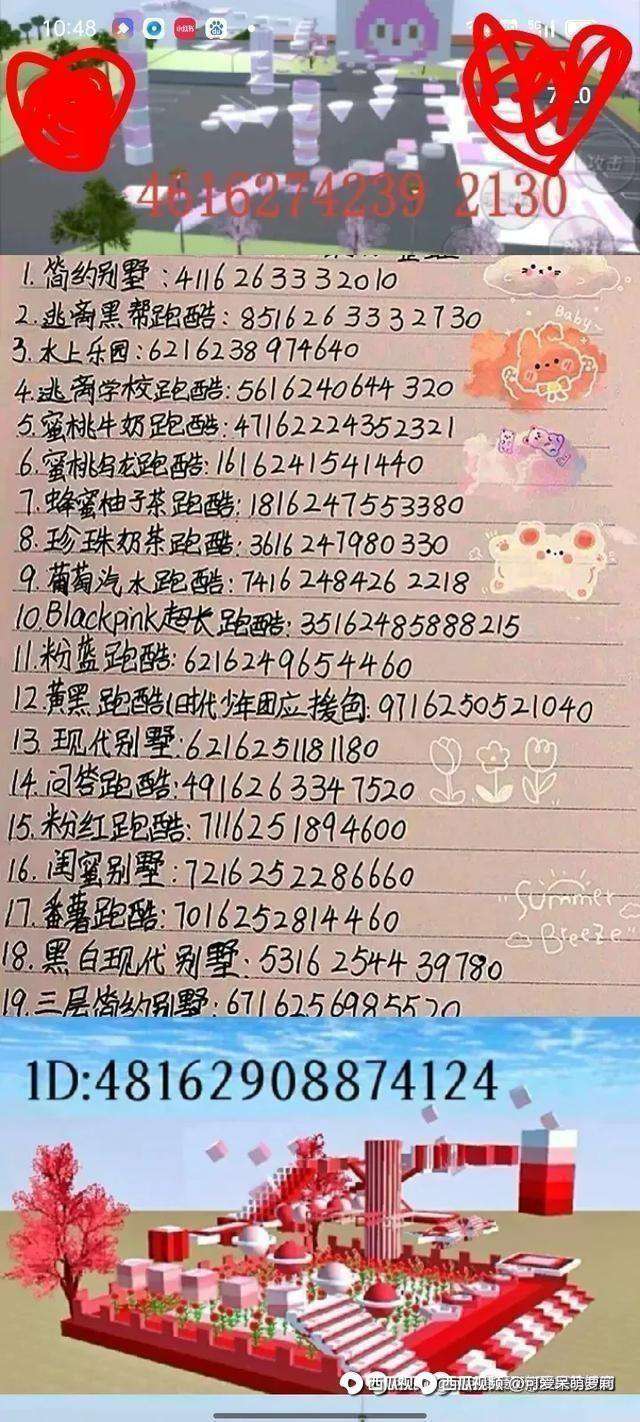 10:48
攻击
4616274239 2130
1.简约别墅:4116263332010
2.逃离黑帮跑酷:8516263332730
3.水上乐园:6216238974640
Baby~
4.逃离学校跑酷:5616240644320
5.蜜桃牛奶跑酷:47162224352321
6.蜜桃乌龙跑酷:1616241541440
7.蜂蜜柚子茶跑酷:1816247553380
8.珍珠奶茶跑酷:3616247980330
9.葡萄汽水跑酷:74162484262218
10.Blackpink超长跑酷:35162485888215
11.粉蓝跑酷:6216249654460
12.黄黑跑酷(时代少年团应援色:9716250521040
13.现代别墅:6216251181180
14.问答跑酷:4916263347520
15.粉红跑酷:7116251894600
16.闺蜜别墅:7216252286660
17.番薯跑酷:7016252814460
Summer
Breeze
18.黑白现代别墅:5316254439780
19.三层简约别墅:6716256985520
1D:48162908874124
西瓜视频@可爱呆萌萝莉